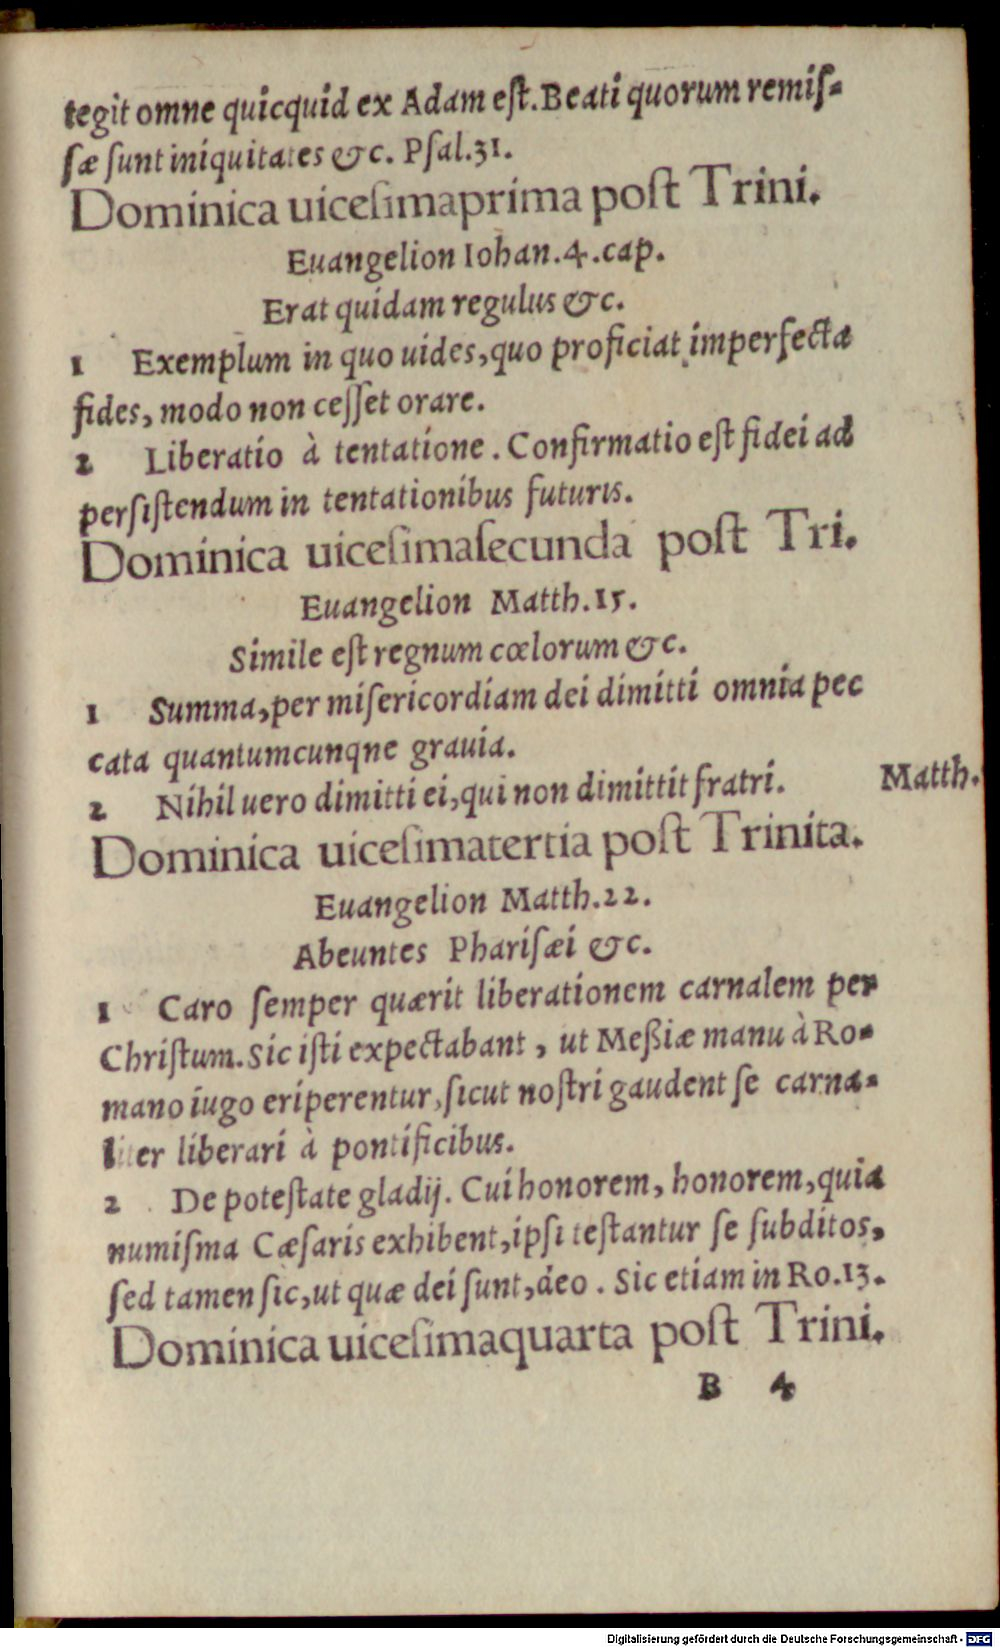 tegit omne quicquid ex Adam eſt. Beati quorum remiſ-
ſæ ſunt iniquitates &c. Pſal.31.
Dominica uiceſimaprima poſt Trini.
Euangelion Iohan.4.cap.
Erat quidam regulus &c.
1 Exemplum in quo uides, quo proficiat imperfecta
fides, modo non ceſſet orare.
2 Liberatio à tentatione. Confirmatio eſt fidei ad
perſiſtendum in tentationibus futuris.
Dominica uiceſimaſecunda poſt Tri.
Euangelion Matth.15.
Simile eſt regnum cœlorum &c.
1 Summa, per miſericordiam dei dimitti omnia pec
cata quantumcunqne grauia.
2 Nihil uero dimitti ei, qui non dimittit fratri. Matth.
Dominica uiceſimatertia poſt Trinita.
Euangelion Matth.22.
Abeuntes Phariſæi &c.
1 Caro ſemper quærit liberationem carnalem per
Chriſtum. Sic iſti expectabant, ut Meßiæ manu à Ro-
mano iugo eriperentur, ſicut noſtri gaudent ſe carna-
liter liberari à pontificibus.
2 De poteſtate gladij. Cui honorem, honorem, quia
numiſma Cæſaris exhibent, ipſi teſtantur ſe ſubditos,
ſed tamen ſic, ut quæ dei ſunt, deo. Sic etiam in Ro.13.
Dominica uiceſimaquarta poſt Trini.
B 4
Digitalisierung gefördert durch die Deutsche Forschungsgemeinschaft - DFG